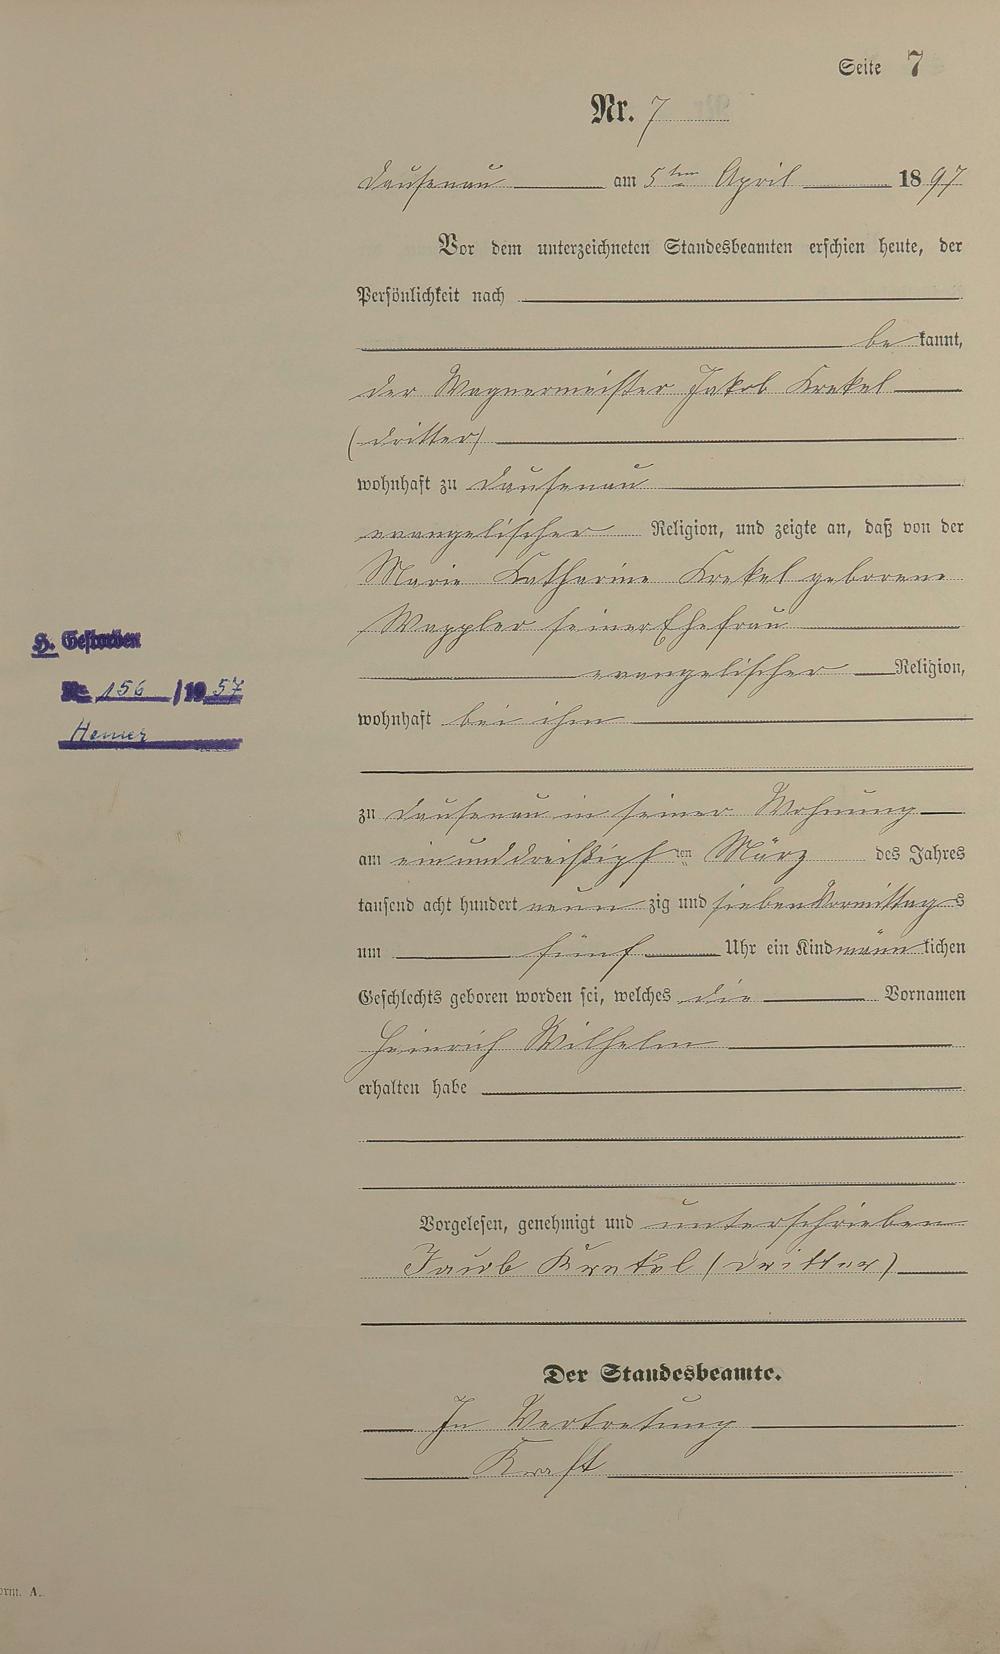 Seite 7
Nr. 7
Dausenau am 5ten April 1897
Vor dem unterzeichneten Standesbeamten erschien heute, der
Persönlichkeit nach
bekannt,
der Wagnermeister Jakob Krekel
(dritter)
wohnhaft zu Dausenau
evangelischer Religion, und zeigte an, daß von der
Marie Katharine Krekel geborene
Wappler seiner Ehefrau
evangelischer Religion,
wohnhaft bei ihm
zu Dausenau in seiner Wohnung
am einunddreißigsten März des Jahres
tausend acht hundert neunzig und sieben Vormittags
um fünf Uhr ein Kind männlichen
Geschlechts geboren worden sei, welches die Vornamen
Heinrich Wilhelm
erhalten habe
Vorgelesen, genehmigt und unterschrieben
Jacob Krekel (dritter)
Der Standesbeamte.
In Vertretung
Kraft
H. Gestorben
Nr. 156/1957
Hemer
orm. A.